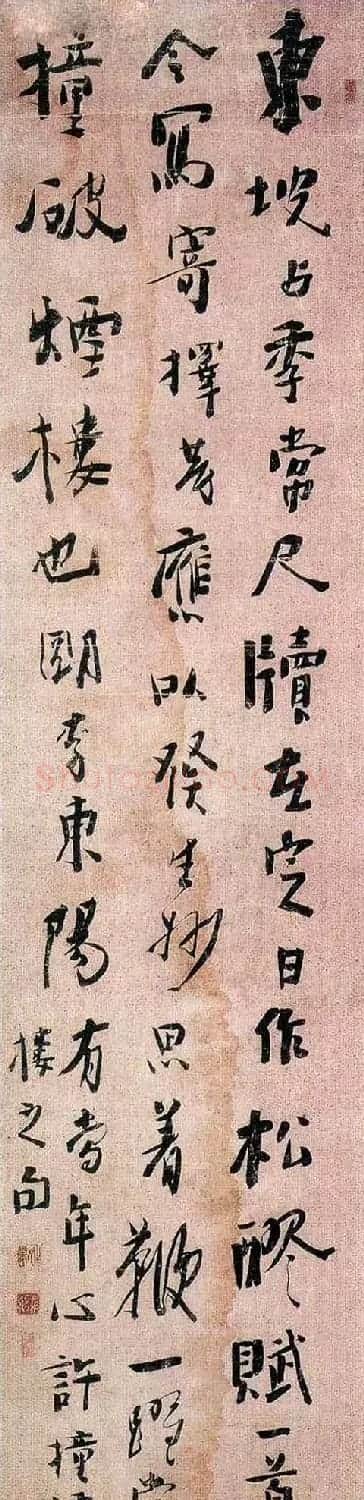 東坡与季常尺牘在定日作松醪賦一首
今寫寄擇等應以發生妙思着鞭一躍當
撞破煙樓也明李東陽有當年心許撞
樓之句